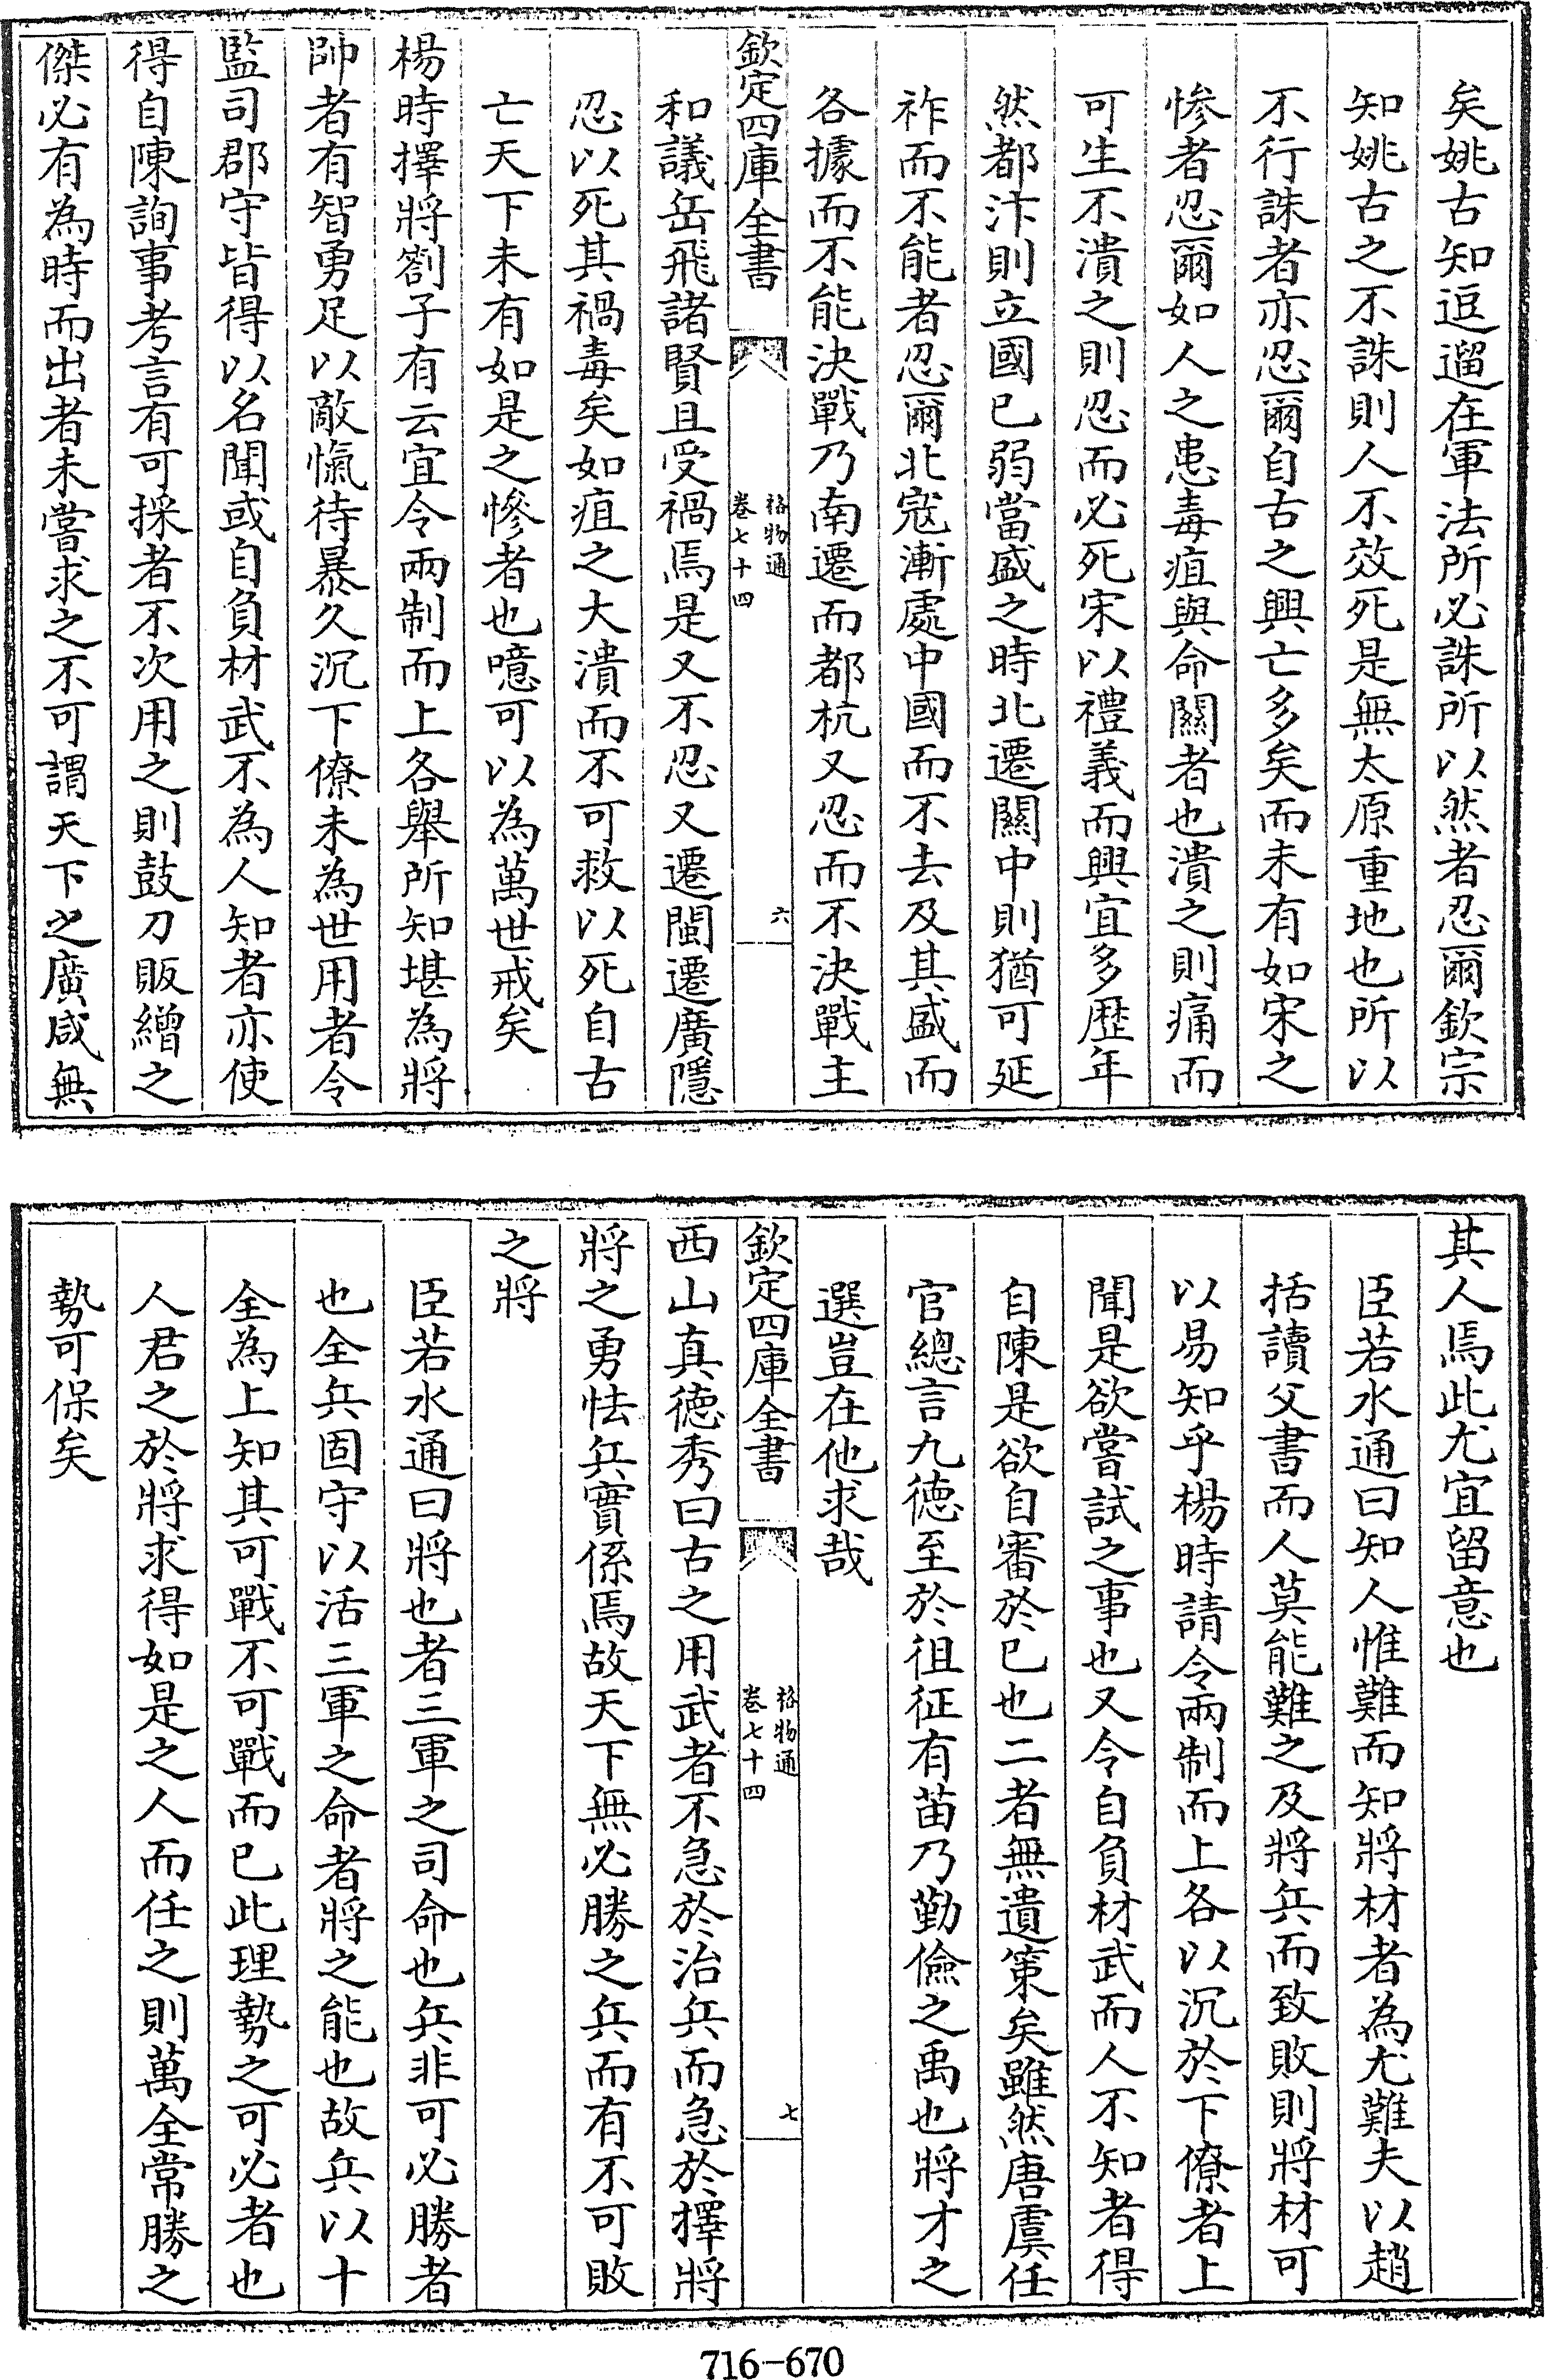 矣姚古知逗遛在軍法所必誅所以然者忍爾欽宗
知姚古之不誅則人不效死是無太原重地也所以
不行誅者亦忍爾自古之興亡多矣而未有如宋之
慘者忍爾如人之患毒疽與命關者也潰之則痛而
可生不潰之則忍而必死宋以禮義而興宜多歴年
然都汴則立國已弱當盛之時北遷關中則猶可延
祚而不能者忍爾北寇漸處中國而不去及其盛而
各據而不能決戰乃南遷而都杭又忍而不決戰主
欽定四庫全書
格物通
卷七十四
六
和議岳飛諸賢且受禍焉是又不忍又遷閩遷廣隱
忍以死其禍毒矣如疽之大潰而不可救以死自古
亡天下未有如是之慘者也噫可以為萬世戒矣
楊時擇將劄子有云宜令兩制而上各舉所知堪為將
帥者有智勇足以敵愾待暴久沉下僚未為世用者令
監司郡守皆得以名聞或自負材武不為人知者亦使
得自陳詢事考言有可採者不次用之則鼓刀販繒之
傑必有為時而出者未嘗求之不可謂天下之廣咸無
其人焉此尤宜留意也
臣若水通曰知人惟難而知將材者為尤難夫以趙
括讀父書而人莫能難之及將兵而致敗則將材可
以易知乎楊時請令兩制而上各以沉於下僚者上
聞是欲嘗試之事也又令自負材武而人不知者得
自陳是欲自審於已也二者無遺策矣雖然唐虞任
官總言九德至於徂征有苗乃勤儉之禹也將才之
選豈在他求哉
欽定四庫全書
格物通
卷七十四
七
西山真德秀曰古之用武者不急於治兵而急於擇將
將之勇怯兵實係焉故天下無必勝之兵而有不可敗
之將
臣若水通曰將也者三軍之司命也兵非可必勝者
也全兵固守以活三軍之命者將之能也故兵以十
全為上知其可戰不可戰而已此理勢之可必者也
人君之於將求得如是之人而任之則萬全常勝之
勢可保矣
716-670